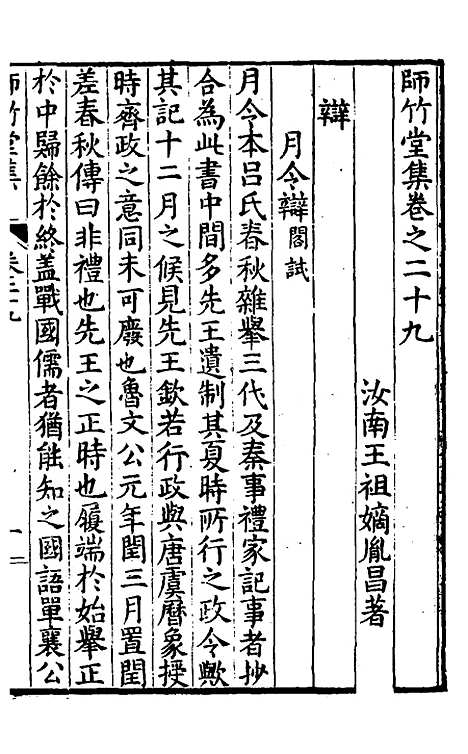 師竹堂集卷之二十九
汝南王祖嫡胤昌著
辯
月令辯閣試
月令本呂氏春秋雜舉三代及秦事禮家記事者抄
合為此書中間多先王遺制其夏時所行之政令歟
其記十二月之候見先王欽若行政與唐虞曆象授
時齊政之意同未可廢也魯文公元年閏三月置閏
差春秋傳曰非禮也先王之正時也履端於始舉正
於中歸餘於終蓋戰國儒者猶能知之國語單襄公
師竹堂集 卷二十九 一